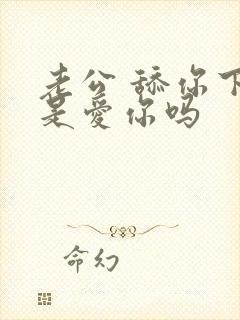 老公 舔你下
是爱你吗
命幻